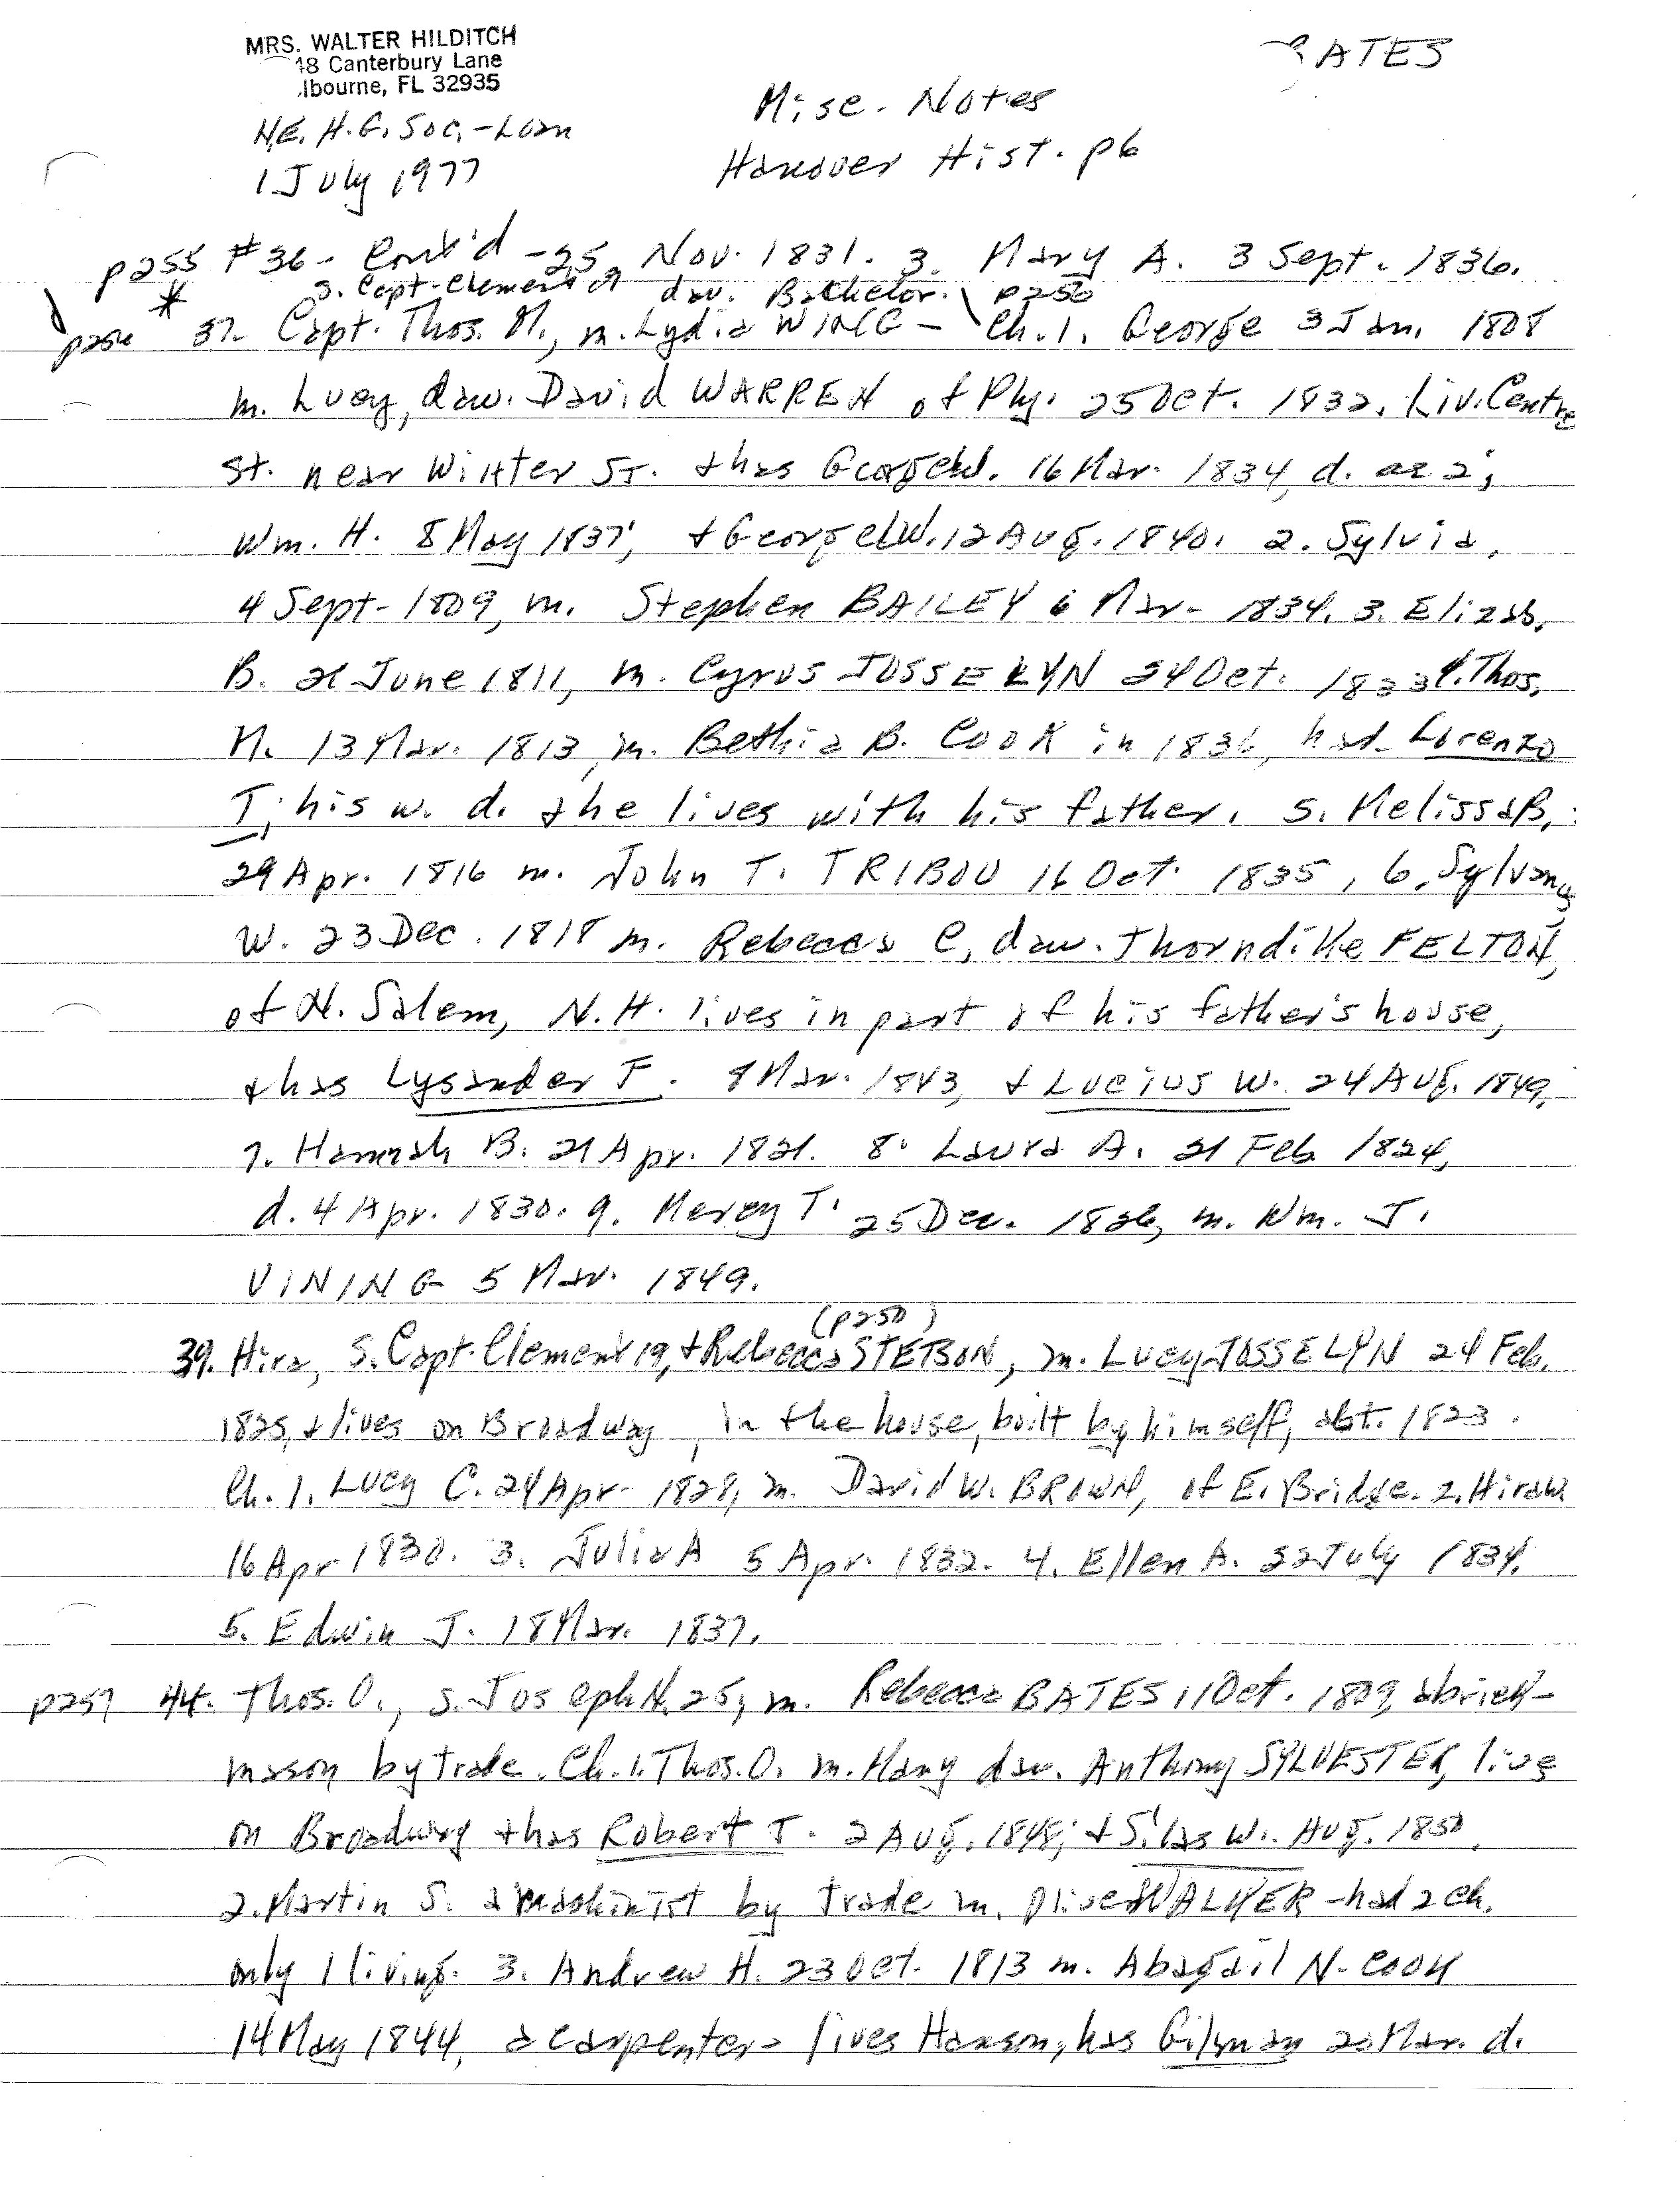 MRS. WALTER HILDITCH
48 Canterbury Lane
lbourne, FL 32935
N.E. H.G. Soc. - Loan
1 July 1977
BATES
Misc. Notes
Hanover Hist. p6
p255 #36 - Cont'd - 25 Nov. 1831. 3. Mary A. 3 Sept. 1836.
* s. Capt. Clement dau. Bachelor. p250
p256 37. Capt. Thos. M., m. Lydia WING - Ch. 1. George 3 Jan. 1808
m. Lucy, dau. David WARREN of Ply. 25 Oct. 1832. Liv. Centre
St. near Winter St. & has George W. 16 Mar. 1834, d. ae 2;
Wm. H. 8 May 1837; & George W. 12 Aug. 1840. 2. Sylvia,
4 Sept. 1809, m. Stephen BAILEY 6 Mar. 1834. 3. Elizab.
B. 21 June 1811, m. Cyrus JOSSELYN 24 Oct. 1833 4. Thos.
M. 13 Mar. 1813, m. Bethia B. COOK in 1836, had Lorenzo
T; his w. d. & he lives with his father. 5. Melissa B.
29 Apr. 1816 m. John T. TRIBOU 16 Oct. 1835, 6. Sylvanus
W. 23 Dec. 1818 m. Rebecca C, dau. Thorndike FELTON,
of N. Salem, N.H. lives in part of his father's house,
& has Lysander F. 8 Mar. 1843, & Lucius W. 24 Aug. 1849.
7. Hannah B. 21 Apr. 1821. 8. Laura A. 21 Feb 1824,
d. 4 Apr. 1830. 9. Mercy T. 25 Dec. 1826, m. Wm. J.
VINING 5 Mar. 1849.
(p250)
39. Hira, s. Capt. Clement 19, & Rebecca STETSON, m. Lucy JOSSELYN 24 Feb.
1825, & lives on Broadway, in the house, built by himself, abt. 1823.
Ch. 1. Lucy C. 24 Apr. 1828, m. David W. BROWN, of E. Bridge. 2. Hira W.
16 Apr 1830. 3. Julia A 5 Apr. 1832. 4. Ellen A. 22 July 1834.
5. Edwin J. 18 Mar. 1837.
p257 44. Thos. O., s. Joseph N. 25, m. Rebecca BATES 11 Oct. 1809, a brick-
mason by trade. Ch. 1. Thos. O. m. Mary dau. Anthony SYLVESTER, live
on Broadway & has Robert T. 2 Aug. 1848; & Silas W. Aug. 1850.
2. Martin S. a machinist by trade m. Olive WALKER - had 2 ch.
only 1 living. 3. Andrew H. 23 Oct. 1813 m. Abagail N. COOK
14 May 1844, a carpenter - lives Hanson, has Gilman 20 Mar. d.